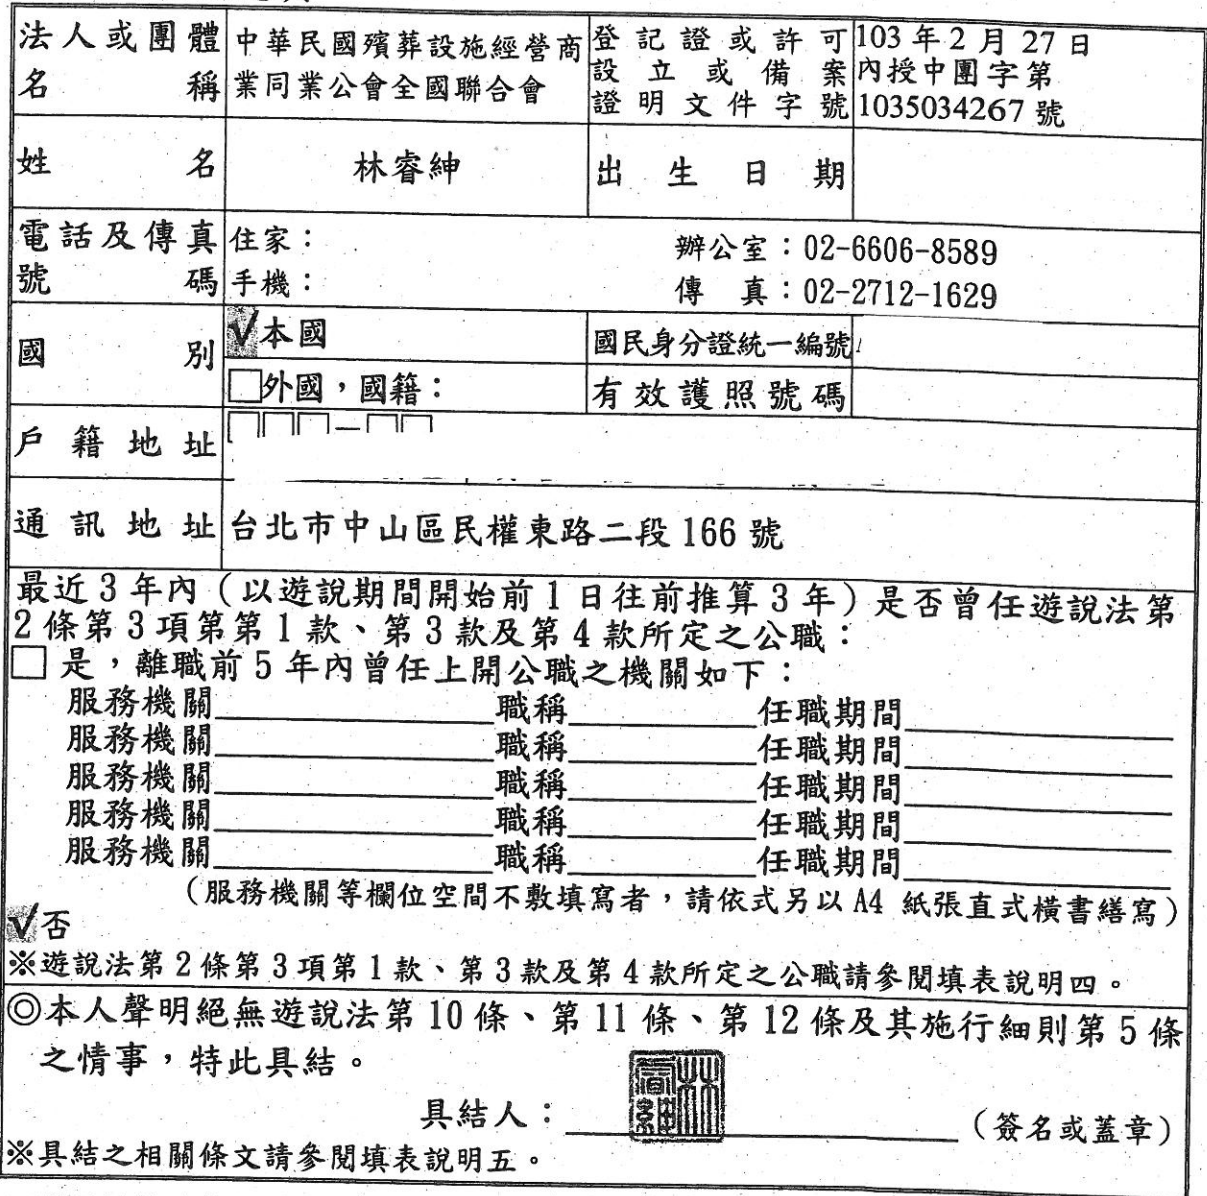 法人或團體 中華民國殯葬設施經營商 登記證或許可 103年2月27日
名稱 業同業公會全國聯合會 設立或備案 內授中團字第
證明文件字號 1035034267號
姓名 林睿紳 出生日期
電話及傳真 住家： 辦公室：02-6606-8589
號碼 手機： 傳真：02-2712-1629
國別 √本國 國民身分證統一編號
□外國，國籍： 有效護照號碼
戶籍地址 □□□－□□
通訊地址 台北市中山區民權東路二段166號
最近3年內（以遊說期間開始前1日往前推算3年）是否曾任遊說法第
2條第3項第第1款、第3款及第4款所定之公職：
□是，離職前5年內曾任上開公職之機關如下：
服務機關 職稱 任職期間
服務機關 職稱 任職期間
服務機關 職稱 任職期間
服務機關 職稱 任職期間
服務機關 職稱 任職期間
（服務機關等欄位空間不敷填寫者，請依式另以A4 紙張直式橫書繕寫）
√否
※遊說法第2條第3項第1款、第3款及第4款所定之公職請參閱填表說明四。
◎本人聲明絕無遊說法第10條、第11條、第12條及其施行細則第5條
之情事，特此具結。
具結人： 林睿紳 （簽名或蓋章）
※具結之相關條文請參閱填表說明五。